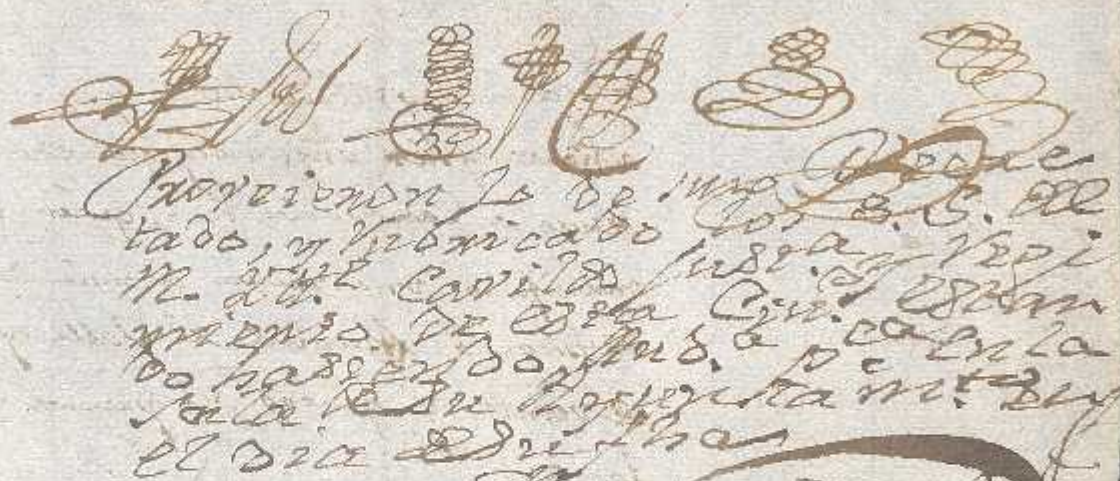 Proveieron lo de suso Decre
tado, y Rubricado los S. S. del
M. Il.e Cavildo Just.a y Regi
miento de esta Ciu.d estan
do hasiendo Aud.a p.ca en la
Sala de su Ayuntam.to En
el dia de su fha